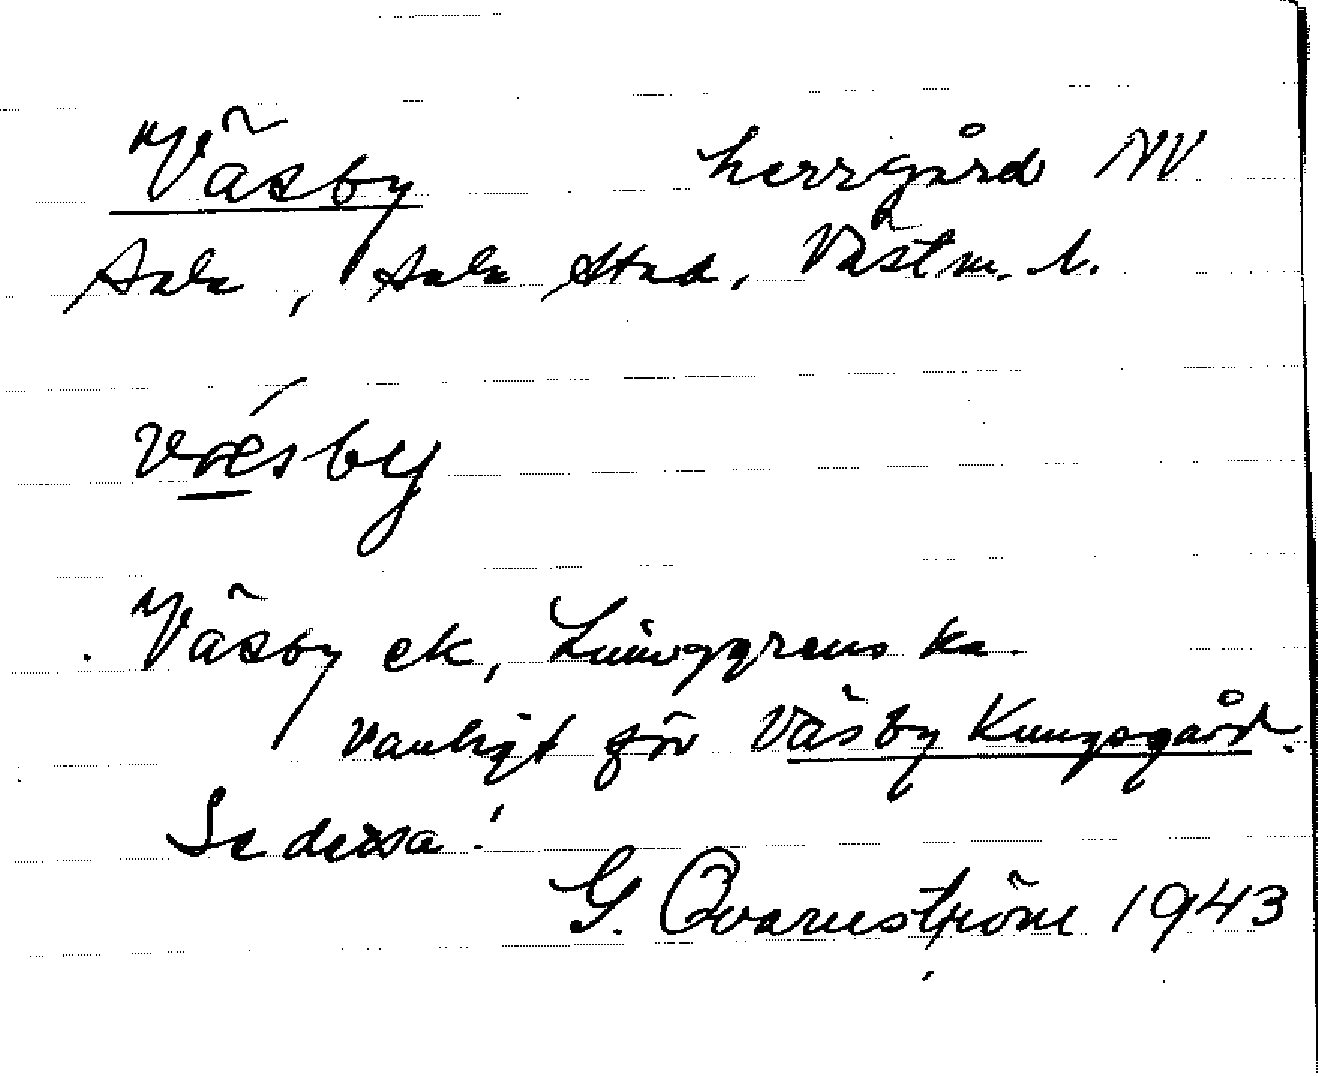 Väsby herrgård NV
Sala, Sala Stad, Västm. l.
væsby
Väsby ek, Ljunggrens ka.
vanligt för Väsby Kungsgård.
Se dessa!
G. Qvarnström 1943